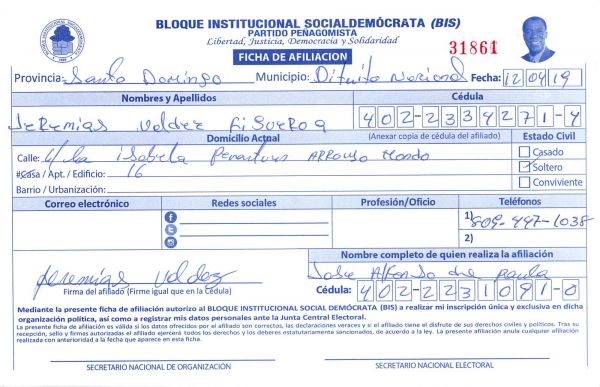 BLOQUE INSTITUCIONAL SOCIALDEMÓCRATA (BIS)
PARTIDO PEÑAGOMISTA
Libertad, Justicia, Democracia y Solidaridad
FICHA DE AFILIACION
31861
Provincia: Santo Domingo Municipio: Ditrito Nacional Fecha: 12/04/19
Nombres y Apellidos Cédula
Jeremias Valdez Figueroa 402-2334271-4
Domicilio Actual (Anexar copia de cédula del afiliado) Estado Civil
Calle: C/ la isabela Arroyo Hondo
Casado
#Casa / Apt. / Edificio: 16
Soltero
Barrio / Urbanización:
Conviviente
Correo electrónico Redes sociales Profesión/Oficio Teléfonos
1) 809-447-1038
2)
Nombre completo de quien realiza la afiliación
Jeremias Valdez
Jose Alfonso de paula
Firma del afiliado (Firme igual que en la Cédula)
Cédula: 402-2231091-0
Mediante la presente ficha de afiliación autorizo al BLOQUE INSTITUCIONAL SOCIAL DEMÓCRATA (BIS) a realizar mi inscripción única y exclusiva en dicha
organización política, así como a registrar mis datos personales ante la Junta Central Electoral.
La presente ficha de afiliación es válida si los datos ofrecidos por el afiliado son correctos, las declaraciones veraces y si el afiliado tiene el disfrute de sus derechos civiles y políticos. Tras su
recepción, sello y firmas autorizadas el afiliado ejercerá todos los derechos y los deberes estatutariamente sancionados, de acuerdo a la ley. La presente afiliación anula cualquier afiliación
realizada con anterioridad a la fecha que aparece en esta ficha.
SECRETARIO NACIONAL DE ORGANIZACIÓN SECRETARIO NACIONAL ELECTORAL